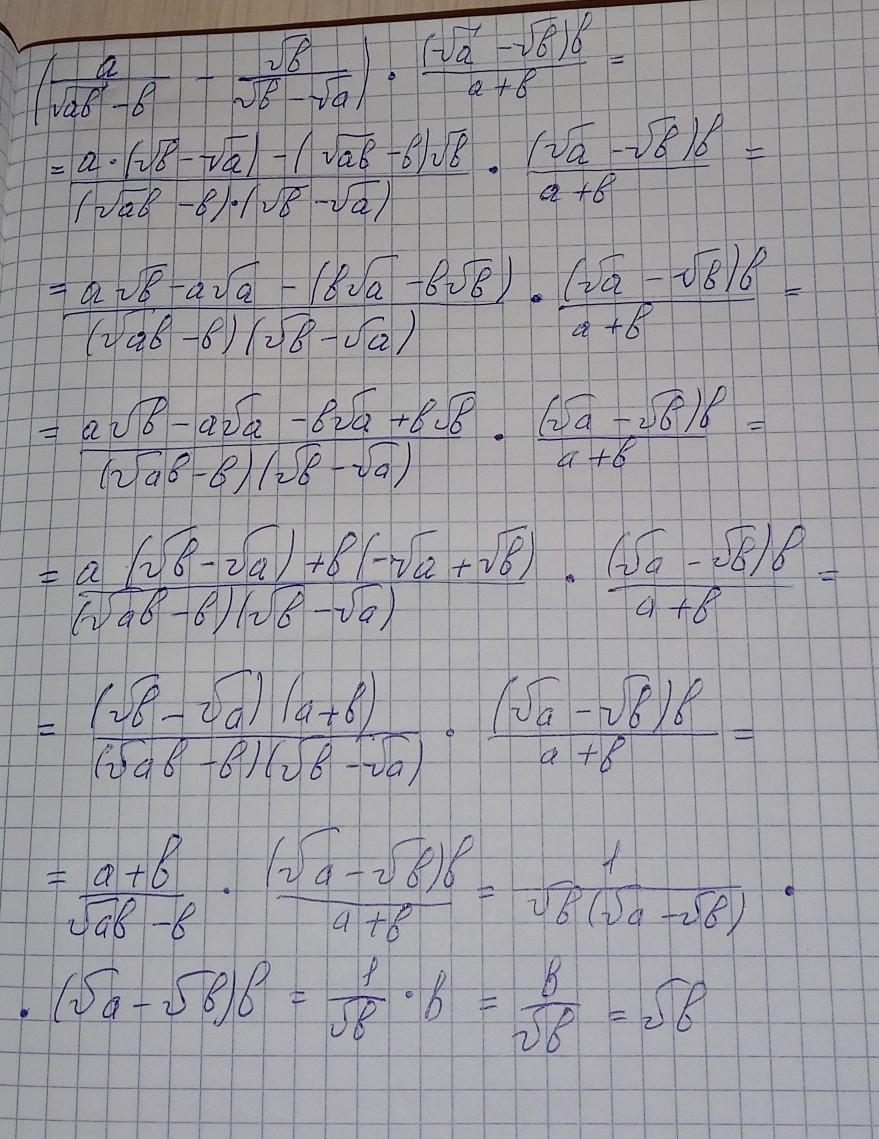 (a/(√ab - b) - √b/(√b - √a)) · (√a - √b)b/(a + b) =
= (a·(√b - √a) - (√ab - b)√b)/((√ab - b)·(√b - √a)) · (√a - √b)b/(a + b) =
= (a√b - a√a - (b√a - b√b))/((√ab - b)(√b - √a)) · (√a - √b)b/(a + b) =
= (a√b - a√a - b√a + b√b)/((√ab - b)(√b - √a)) · (√a - √b)b/(a + b) =
= (a(√b - √a) + b(-√a + √b))/((√ab - b)(√b - √a)) · (√a - √b)b/(a + b) =
= (√b - √a)(a + b)/((√ab - b)(√b - √a)) · (√a - √b)b/(a + b) =
= (a + b)/(√ab - b) · (√a - √b)b/(a + b) = 1/(√b(√a - √b)) ·
· (√a - √b)b = 1/√b · b = b/√b = √b